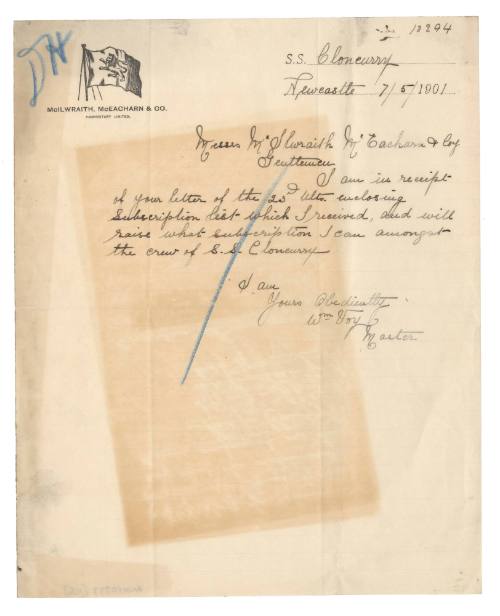 13294
DH
S.S. Cloncurry
McILWRAITH, McEACHARN & CO.
PROPRIETARY LIMITED.
Newcastle 7/5/1901
Messrs McIlwraith McEacharn & Coy
Gentlemen
I am in receipt
of your letter of the 23d Ulto. enclosing
Subscription list which I received, and will
raise what subscription I can amongst
the crew of S.S. Cloncurry
I am
Yours Obediently
Wm Foy
Master